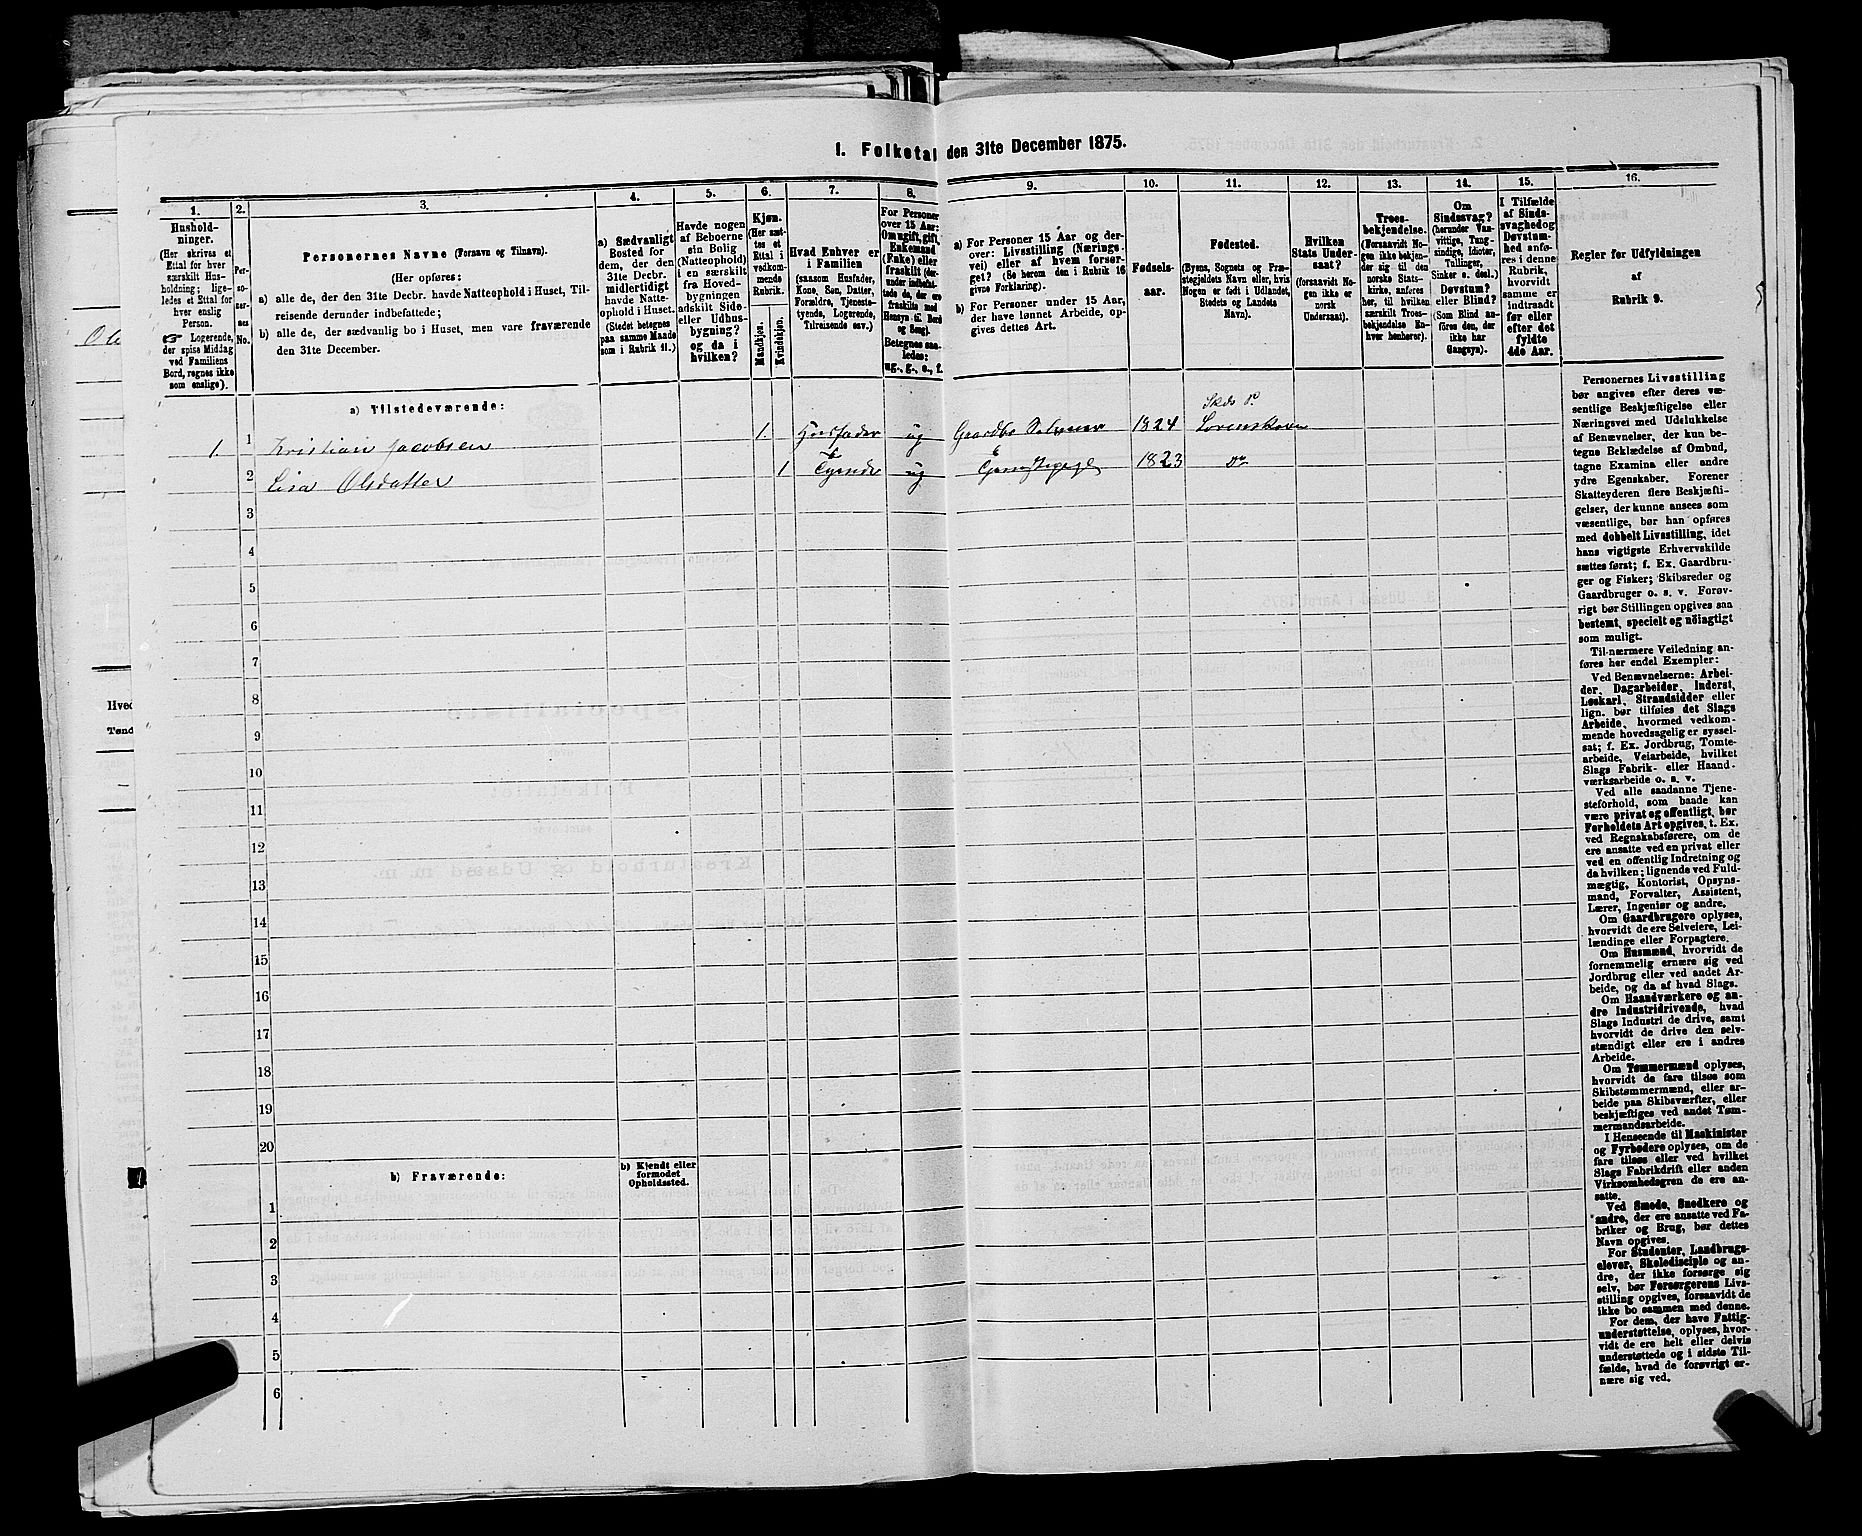 1. Folketal den 31te December 1875.
1.
Husholdninger.
(Her skrives et
Ettal for hver
særskilt Husholdning;
ligeledes et Ettal for
hver enslig
Person.
☞ Logerende,
der spise Middag
ved Familiens
Bord, regnes ikke
som enslige).
2.
Personernes
No.
3.
Personernes Navne (Fornavn og Tilnavn).
(Her opføres:
a) alle de, der den 31te Decbr. havde Natteophold i Huset, Tilreisende derunder indbefattede;
b) alle de, der sædvanlig bo i Huset, men vare fraværende
den 31te December.
4.
a) Sædvanligt
Bosted for
dem, der den
31te Decbr.
midlertidigt
havde Natteophold i Huset.
(Stedet betegnes
paa samme Maade
som i Rubrik 11.)
5.
Havde nogen
af Beboerne
sin Bolig
(Natteophold)
i en særskilt
fra Hovedbygningen
adskilt Side-
eller Udhusbygning?
og da i
hvilken?
6.
Kjøn.
(Her sættes et
Ettal i
vedkommende
Rubrik.
Mandkjøn.
Kvindekjøn.
7.
Hvad Enhver er
i Familien
(saasom Husfader,
Kone, Søn, Datter,
Forældre, Tjenestetyende, Logerende,
Tilreisende osv.)
8.
For Personer
over 15 Aar:
Om ugift, gift,
Enkemand
(Enke) eller
fraskilt (derunder indbefattede de, der ere
fraskilte med
Hensyn til Bord
og Seng).
Betegnes saaledes:
ug., g., e., f.
9.
a) For Personer 15 Aar og derover: Livsstilling (Næringsvei) eller af hvem forsørget? (Se herom den i Rubrik 16
givne Forklaring).
b) For Personer under 15 Aar,
der have lønnet Arbeide, opgives dettes Art.
10.
Fødselsaar.
11.
Fødested.
(Byens, Sognets og Præstegjeldets Navn eller, hvis
Nogen er født i Udlandet,
Stedets og Landets
Navn).
12.
Hvilken
Stats Undersaat?
(forsaavidt Nogen ikke er
norsk
Undersaat).
13.
Troesbekjendelse.
(Forsaavidt Nogen ikke bekjender sig til den
norske Statskirke, anføres
her, til hvilken
særskilt Troesbekjendelse Enhver henhører).
14.
Om
Sindssvag?
(herunder Vanvittige, Tungsindige, Idioter,
Tullinger,
Sinker o. desl.)
Døvstum?
eller Blind?
(Som Blind anføres den, der
ikke har
Gangsyn).
15.
I Tilfælde
af Sindssvaghed og
Døvstumhed anføres i denne
Rubrik,
hvorvidt
samme er
indtraadt
før eller
efter det
fyldte
4de Aar.
16.
Regler for Udfyldningen
af
Rubrik 9.
a) Tilstedeværende:
1 1 Kristian Jacobsen 1. Husfader ug Gaardbr Selveier 1824 Skeds P. Lørenskoven
2 Lisa Olsdatter 1 Tyende ug 1823 Do
3
4
5
6
7
8
9
10
11
12
13
14
15
16
17
18
19
20
b) Fraværende:
b) Kjendt eller
formodet
Opholdssted.
1
2
3
4
5
6
Personernes Livsstilling
bør angives efter deres væsentlige Beskjæftigelse eller
Næringsvei med Udelukkelse
af Benævnelser, der kun betegne Beklædelse af Ombud,
tagne Examina eller andre
ydre Egenskaber. Forener
Skatteyderen flere Beskjæftigelser, der kunne ansees som
væsentlige, bør han opføres
med dobbelt Livsstilling, idet
hans vigtigste Erhvervskilde
sættes først; f. Ex. Gaardbruger og Fisker; Skibsreder og
Gaardbruger o. s. v. Forøvrigt bør Stillingen opgives saa
bestemt, specielt og nöiagtigt
som muligt.
Til nærmere Veiledning anføres her endel Exempler:
Ved Benævnelserne: Arbeider, Dagarbeider, Inderst,
Løskarl, Strandsidder eller
lign. bør tilføies det Slags
Arbeide, hvormed vedkommende hovedsagelig er sysselsat; f. Ex. Jordbrug, Tomtearbeide, Veiarbeide, hvilket
Slags Fabrik- eller Haandværksarbeide o. s. v.
Ved alle saadanne Tjenesteforhold, som baade kan
være privat og offentligt, bør
Forholdets Art opgives, t. Ex.
ved Regnskabsførere, om de
ere ansatte ved en privat eller
ved en offentlig Indretning og
da hvilken; lignende ved Fuldmægtig, Kontorist, Opsynsmand, Forvalter, Assistent,
Lærer, Ingeniør og andre.
Om Gaardbrugere oplyses,
hvorvidt de ere Selveiere, Leilændinge eller Forpagtere.
Om Husmænd, hvorvidt de
fornemmelig ernære sig ved
Jordbrug eller ved andet Arbeide, og da af hvad Slags.
Om Haandværkere og andre Industridrivende, hvad
Slags Industri de drive, samt
hvorvidt de drive den selvstændigt eller ere i andres
Arbeide.
Om Tømmermænd oplyses,
hvorvidt de fare tilsøs som
Skibstømmermænd, eller arbeide paa Skibsværfter, eller
beskjæftiges ved andet Tømmermandsarbeide.
I Henseende til Maskinister
og Fyrbødere oplyses, om de
fare tilsøs eller ved hvilket
Slags Fabrikdrift eller anden
Virksomhedsgren de ere ansatte.
Ved Smede, Snedkere og
andre, der ere ansatte ved Fabriker og Brug, bør dettes
Navn opgives.
For Studenter, Landbrugselever, Skoledisciple og andre, der ikke forsørge sig
selv, bør Forsørgerens Livsstilling opgives, forsaavidt de
ikke bo sammen med denne.
For dem, der have Fattigunderstøttelse, oplyses, hvorvidt de ere helt eller delvis
understøttede og i sidste Tilfælde, hvad de forøvrigt ernære sig ved.